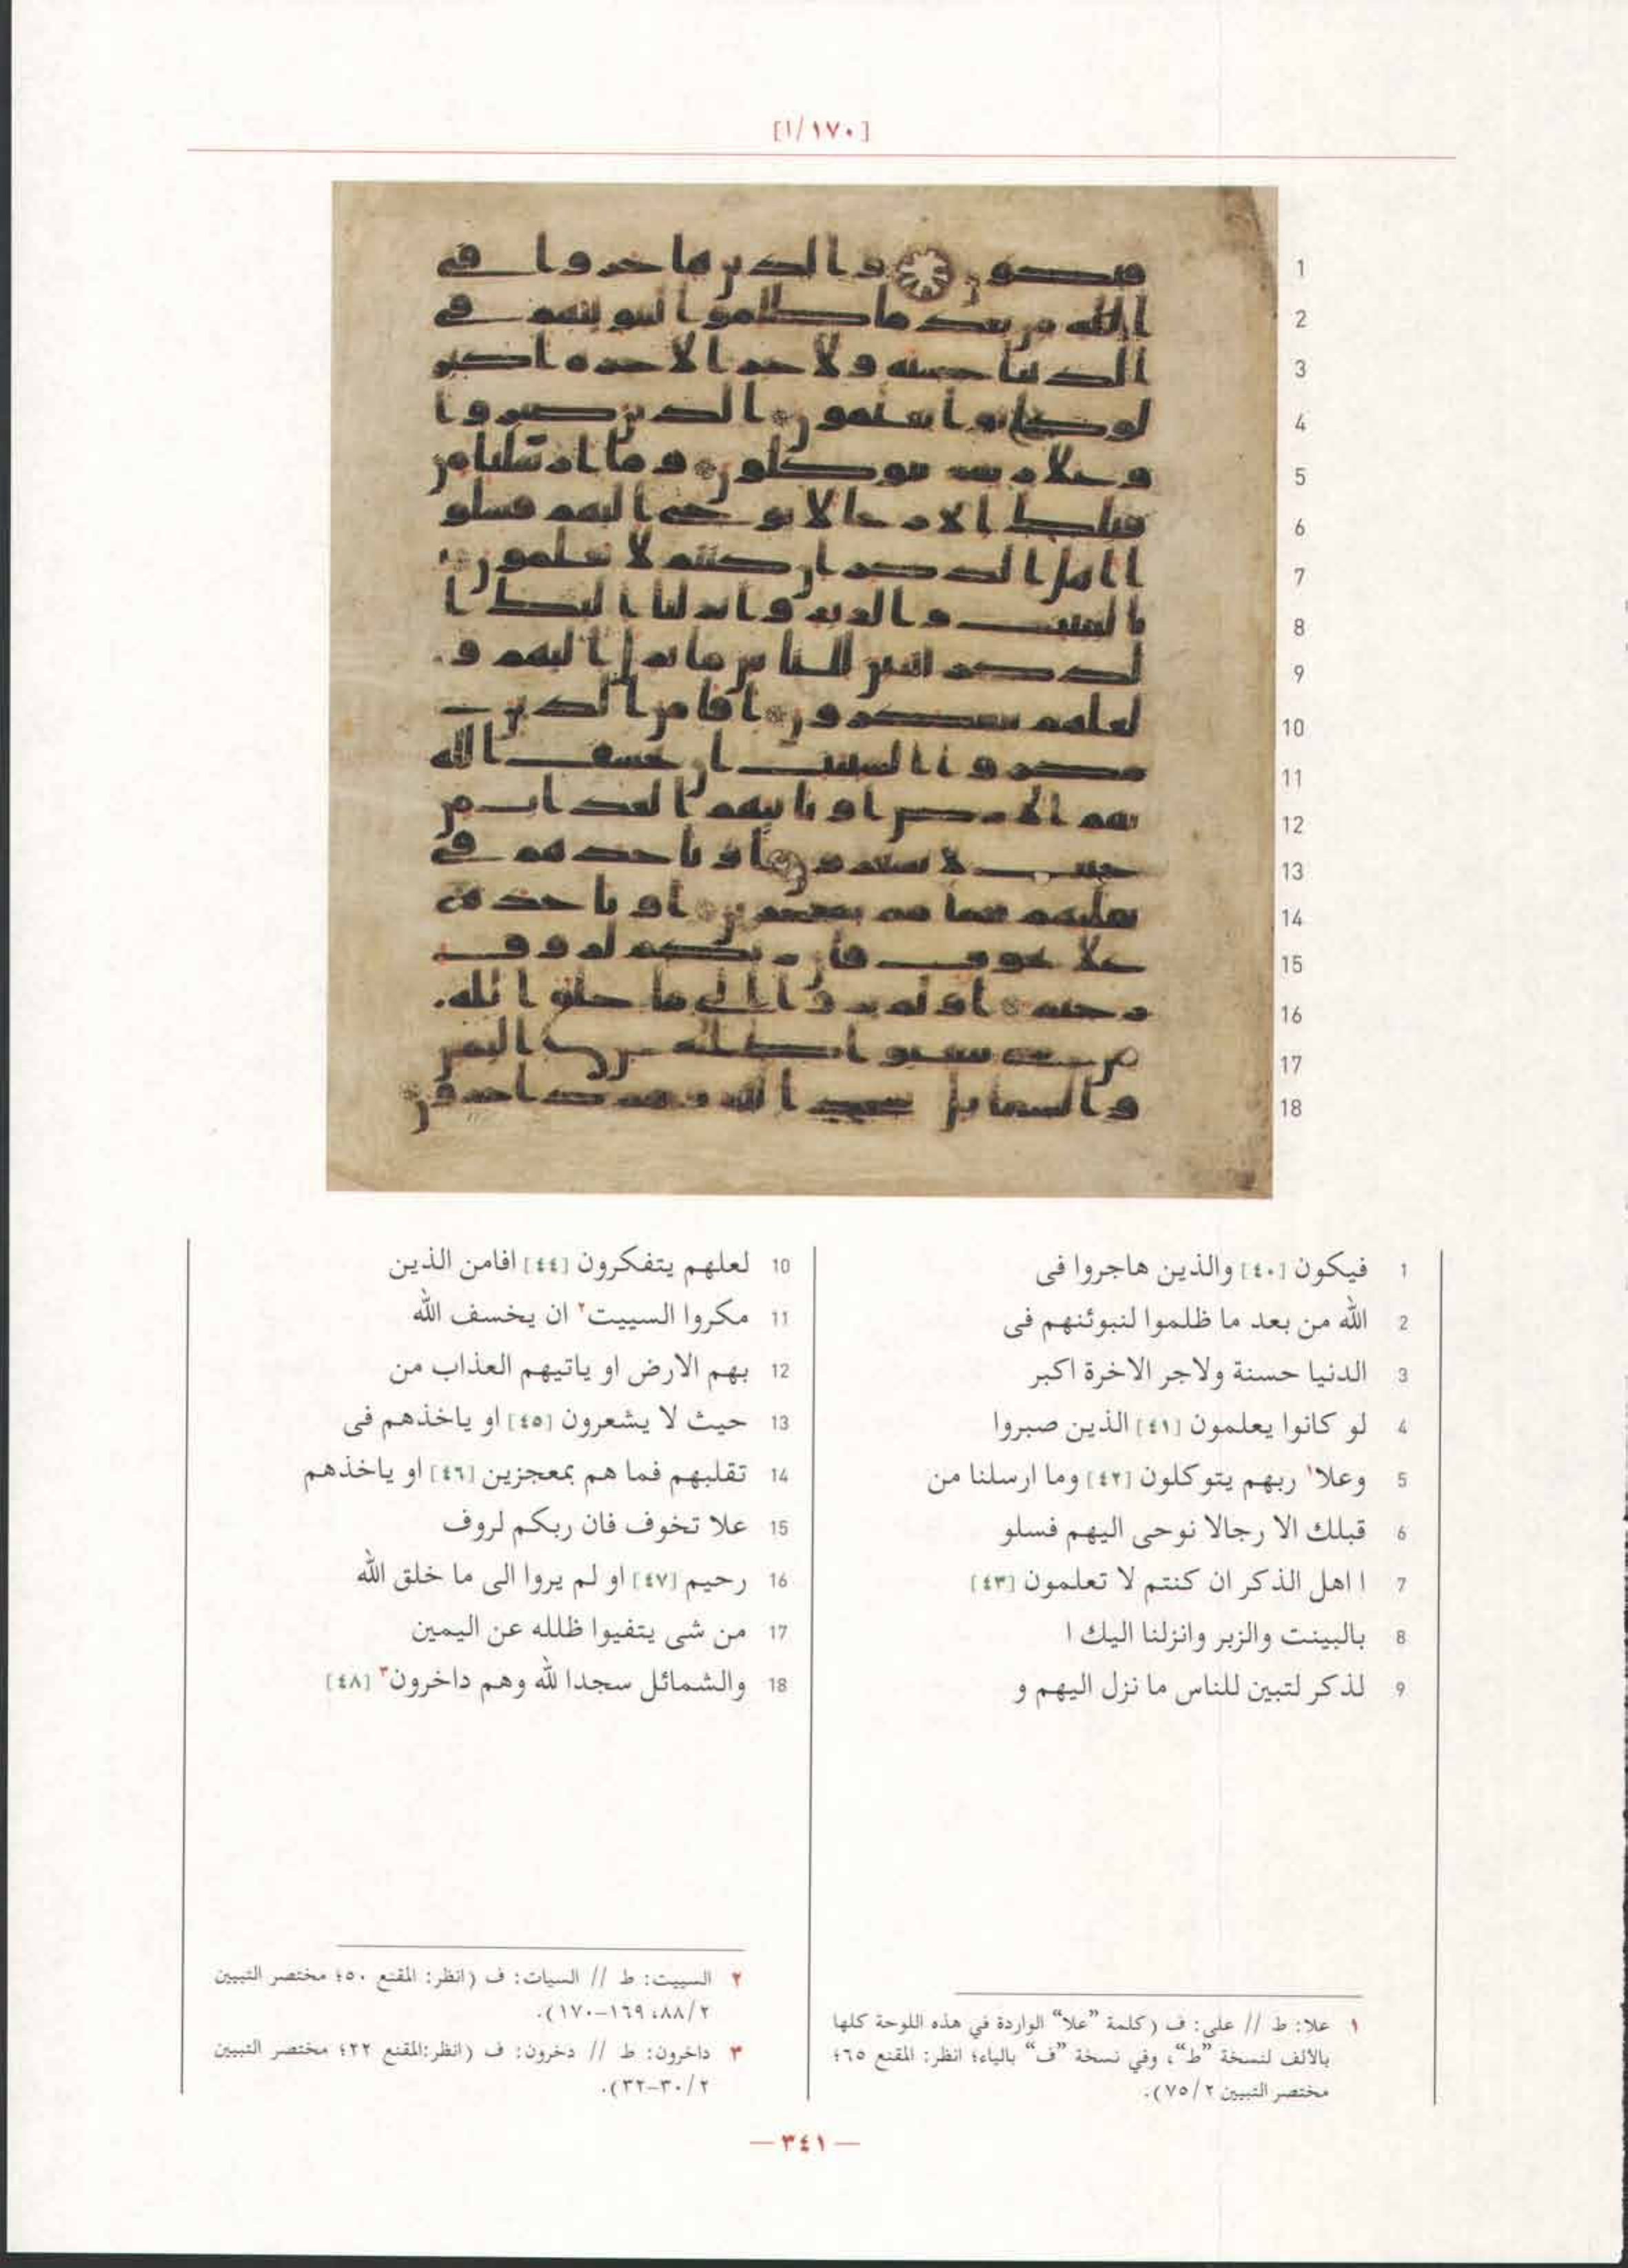 [١/١٧٠]
1 فيكون [٤٠] والذين هاجروا فى
2 الله من بعد ما ظلموا لنبوئنهم فى
3 الدنيا حسنة ولاجر الاخرة اكبر
4 لو كانوا يعلمون [٤١] الذين صبروا
5 وعلا١ ربهم يتوكلون [٤٢] وما ارسلنا من
6 قبلك الا رجالا نوحى اليهم فسلو
7 ا اهل الذكر ان كنتم لا تعلمون [٤٣]
8 بالبينت والزبر وانزلنا اليك ا
9 لذكر لتبين للناس ما نزل اليهم و
10 لعلهم يتفكرون [٤٤] افامن الذين
11 مكروا السييت٢ ان يخسف الله
12 بهم الارض او ياتيهم العذاب من
13 حيث لا يشعرون [٤٥] او ياخذهم فى
14 تقلبهم فما هم بمعجزين [٤٦] او ياخذهم
15 علا تخوف فان ربكم لروف
16 رحيم [٤٧] او لم يروا الى ما خلق الله
17 من شى يتفيوا ظلله عن اليمين
18 والشمائل سجدا لله وهم داخرون٣ [٤٨]
١ علا: ط // على: ف (كلمة "علا" الواردة في هذه اللوحة كلها
بالألف لنسخة "ط"، وفي نسخة "ف" بالياء؛ انظر: المقنع ٦٥؛
مختصر التبيين ٧٥/٢).
٢ السييت: ط // السيات: ف (انظر: المقنع ٥٠؛ مختصر التبيين
٨٨/٢، ١٦٩-١٧٠).
٣ داخرون: ط // دخرون: ف (انظر:المقنع ٢٢؛ مختصر التبيين
٣٠/٢-٣٢).
— ٣٤١ —